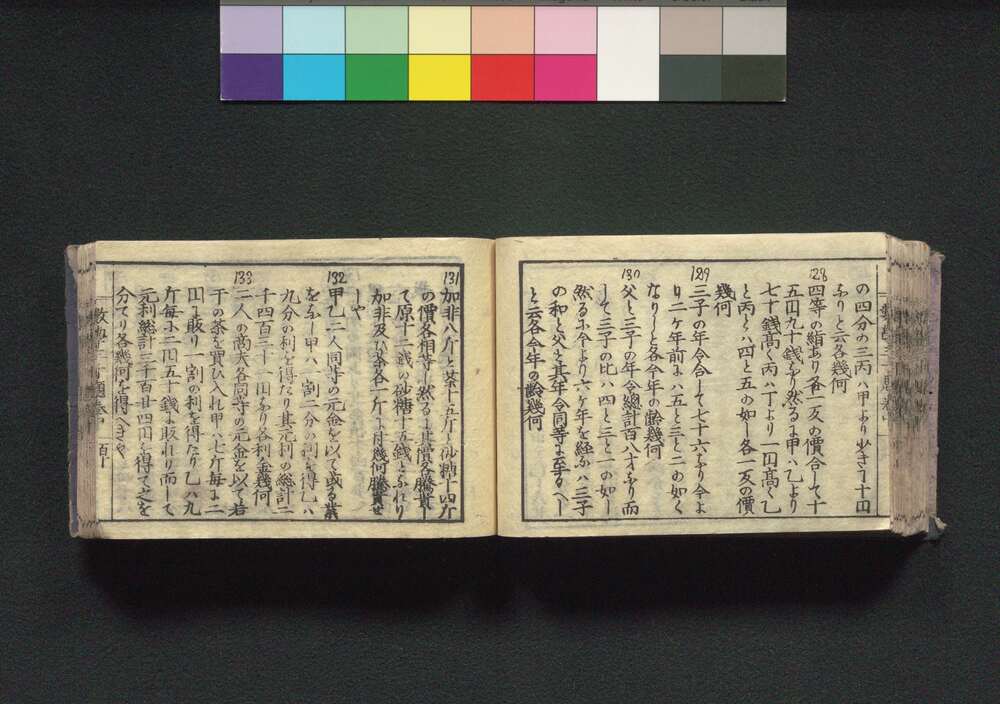 の四分の三丙ハ甲より少き丁十円
ふりと云各幾何
128
四等の絹あり各一反の價合して十
五円九十銭ふり然るに甲ハ乙より
七十銭高く丙ハ丁より一円高く乙
と丙とハ四と五の如し各一反の價
幾何
129
三子の年令合して七十六ふり今よ
り二ケ年前にハ五と三と二の如く
なりしと各今年の齢幾何
130
父と三子の年令總計百八才ふり而
して三子の比ハ四と三と一の如し
然るに今より六ケ年を経ふハ三子
の和と父と其年令同等に至るへし
と云各今年の齢幾何
131
加非八斤と茶十五斤と砂糖十四斤
の價各相等し然るに其價各騰貴し
て原十二銭の砂糖十五銭とふれり
加非及ひ茶各一斤に付幾何騰貴せ
しや
132
甲乙二人同等の元金を以て或る業
をふし甲ハ一割二分の利を得乙ハ
九分の利を得たり其元利の總計二
千四百三十一円ふり各利金幾何
133
二人の商夫各同等の元金を以て若
干の茶を買ひ入れ甲ハ七斤毎に二
円に販り一割の利を得たり乙ハ九
斤毎に二円五十銭に販れり而して
元利總計三千百廿四円を得て之を
分てり各幾何を得へきや